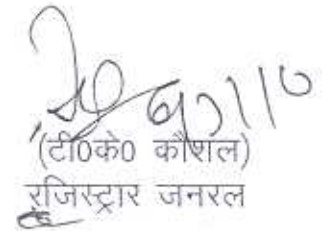 (टी0के0 कौशल)
रजिस्ट्रार जनरल